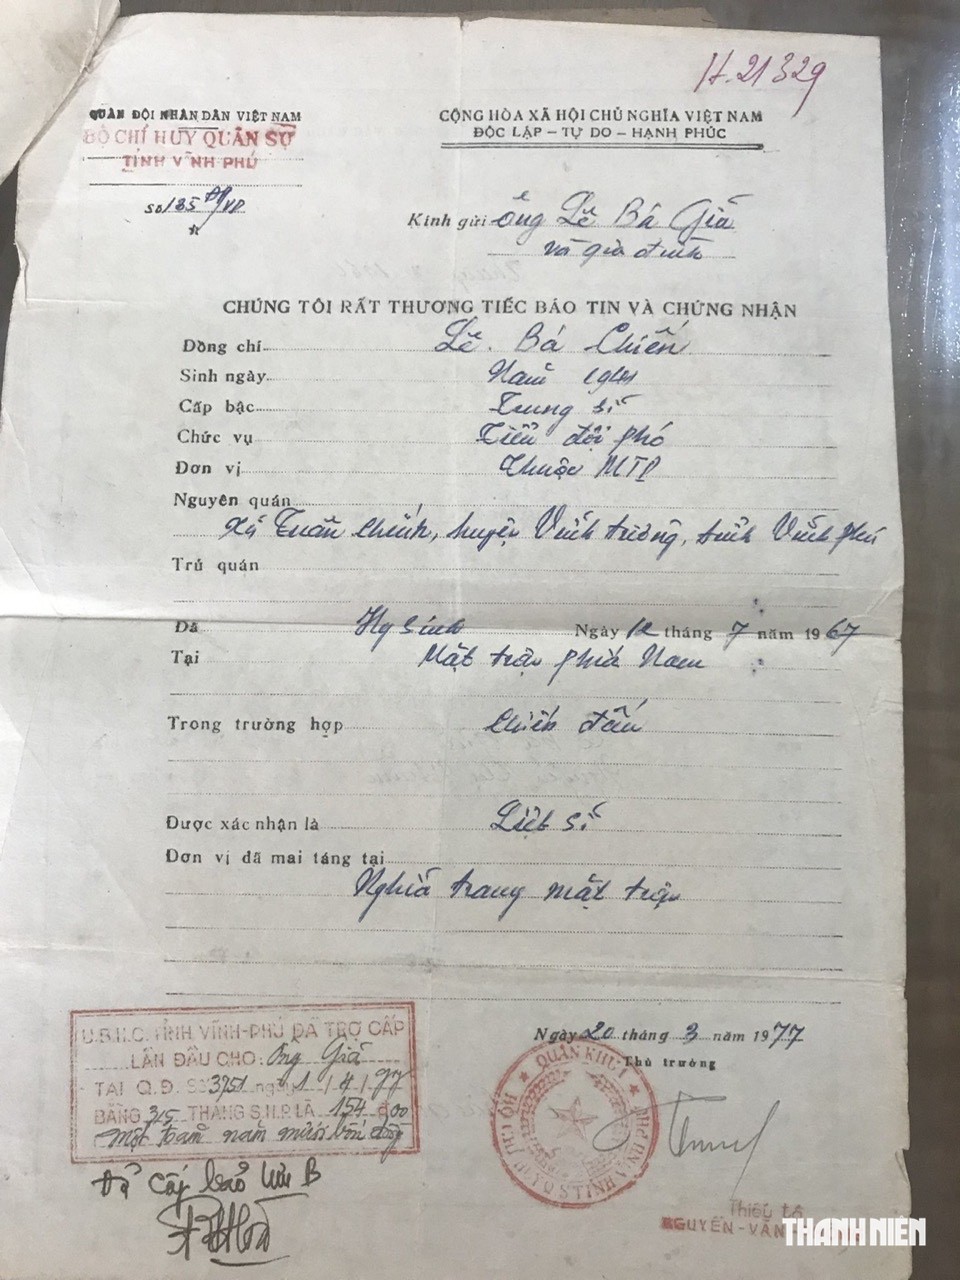 H.21329
QUÂN ĐỘI NHÂN DÂN VIỆT NAM
BỘ CHỈ HUY QUÂN SỰ
TỈNH VĨNH PHÚ
Số 135
CỘNG HÒA XÃ HỘI CHỦ NGHĨA VIỆT NAM
ĐỘC LẬP - TỰ DO - HẠNH PHÚC
Kính gửi ông Lê Bá Giá
và gia đình
CHÚNG TÔI RẤT THƯƠNG TIẾC BÁO TIN VÀ CHỨNG NHẬN
Đồng chí Lê Bá Chiến
Sinh ngày Năm 1941
Cấp bậc Trung sĩ
Chức vụ Tiểu đội phó
Đơn vị Thuộc MTP
Nguyên quán
Xã Tuân Chính, huyện Vĩnh tường, tỉnh Vĩnh phú
Trú quán
Đã Hy sinh Ngày 12 tháng 7 năm 1967
Tại Mặt trận phía Nam
Trong trường hợp Chiến đấu
Được xác nhận là Liệt sĩ
Đơn vị đã mai táng tại
Nghĩa trang mặt trận
U.B.H.C. TỈNH VĨNH-PHÚ ĐÃ TRỢ CẤP
LẦN ĐẦU CHO: Ông Giá
TẠI Q.Đ. Số 3751 ngày 1/4/77
BẰNG THÁNG S.H.P. LÀ 154đ00
Một trăm năm mươi bốn đồng
Đã cấp báo lưu B
Ngày 20 tháng 3 năm 1977
Thủ trưởng
QUÂN KHU 1
BỘ CHỈ HUY Q S TỈNH VĨNH PHÚ
Thiếu tá
NGUYỄN-VĂN
THANH NIÊN